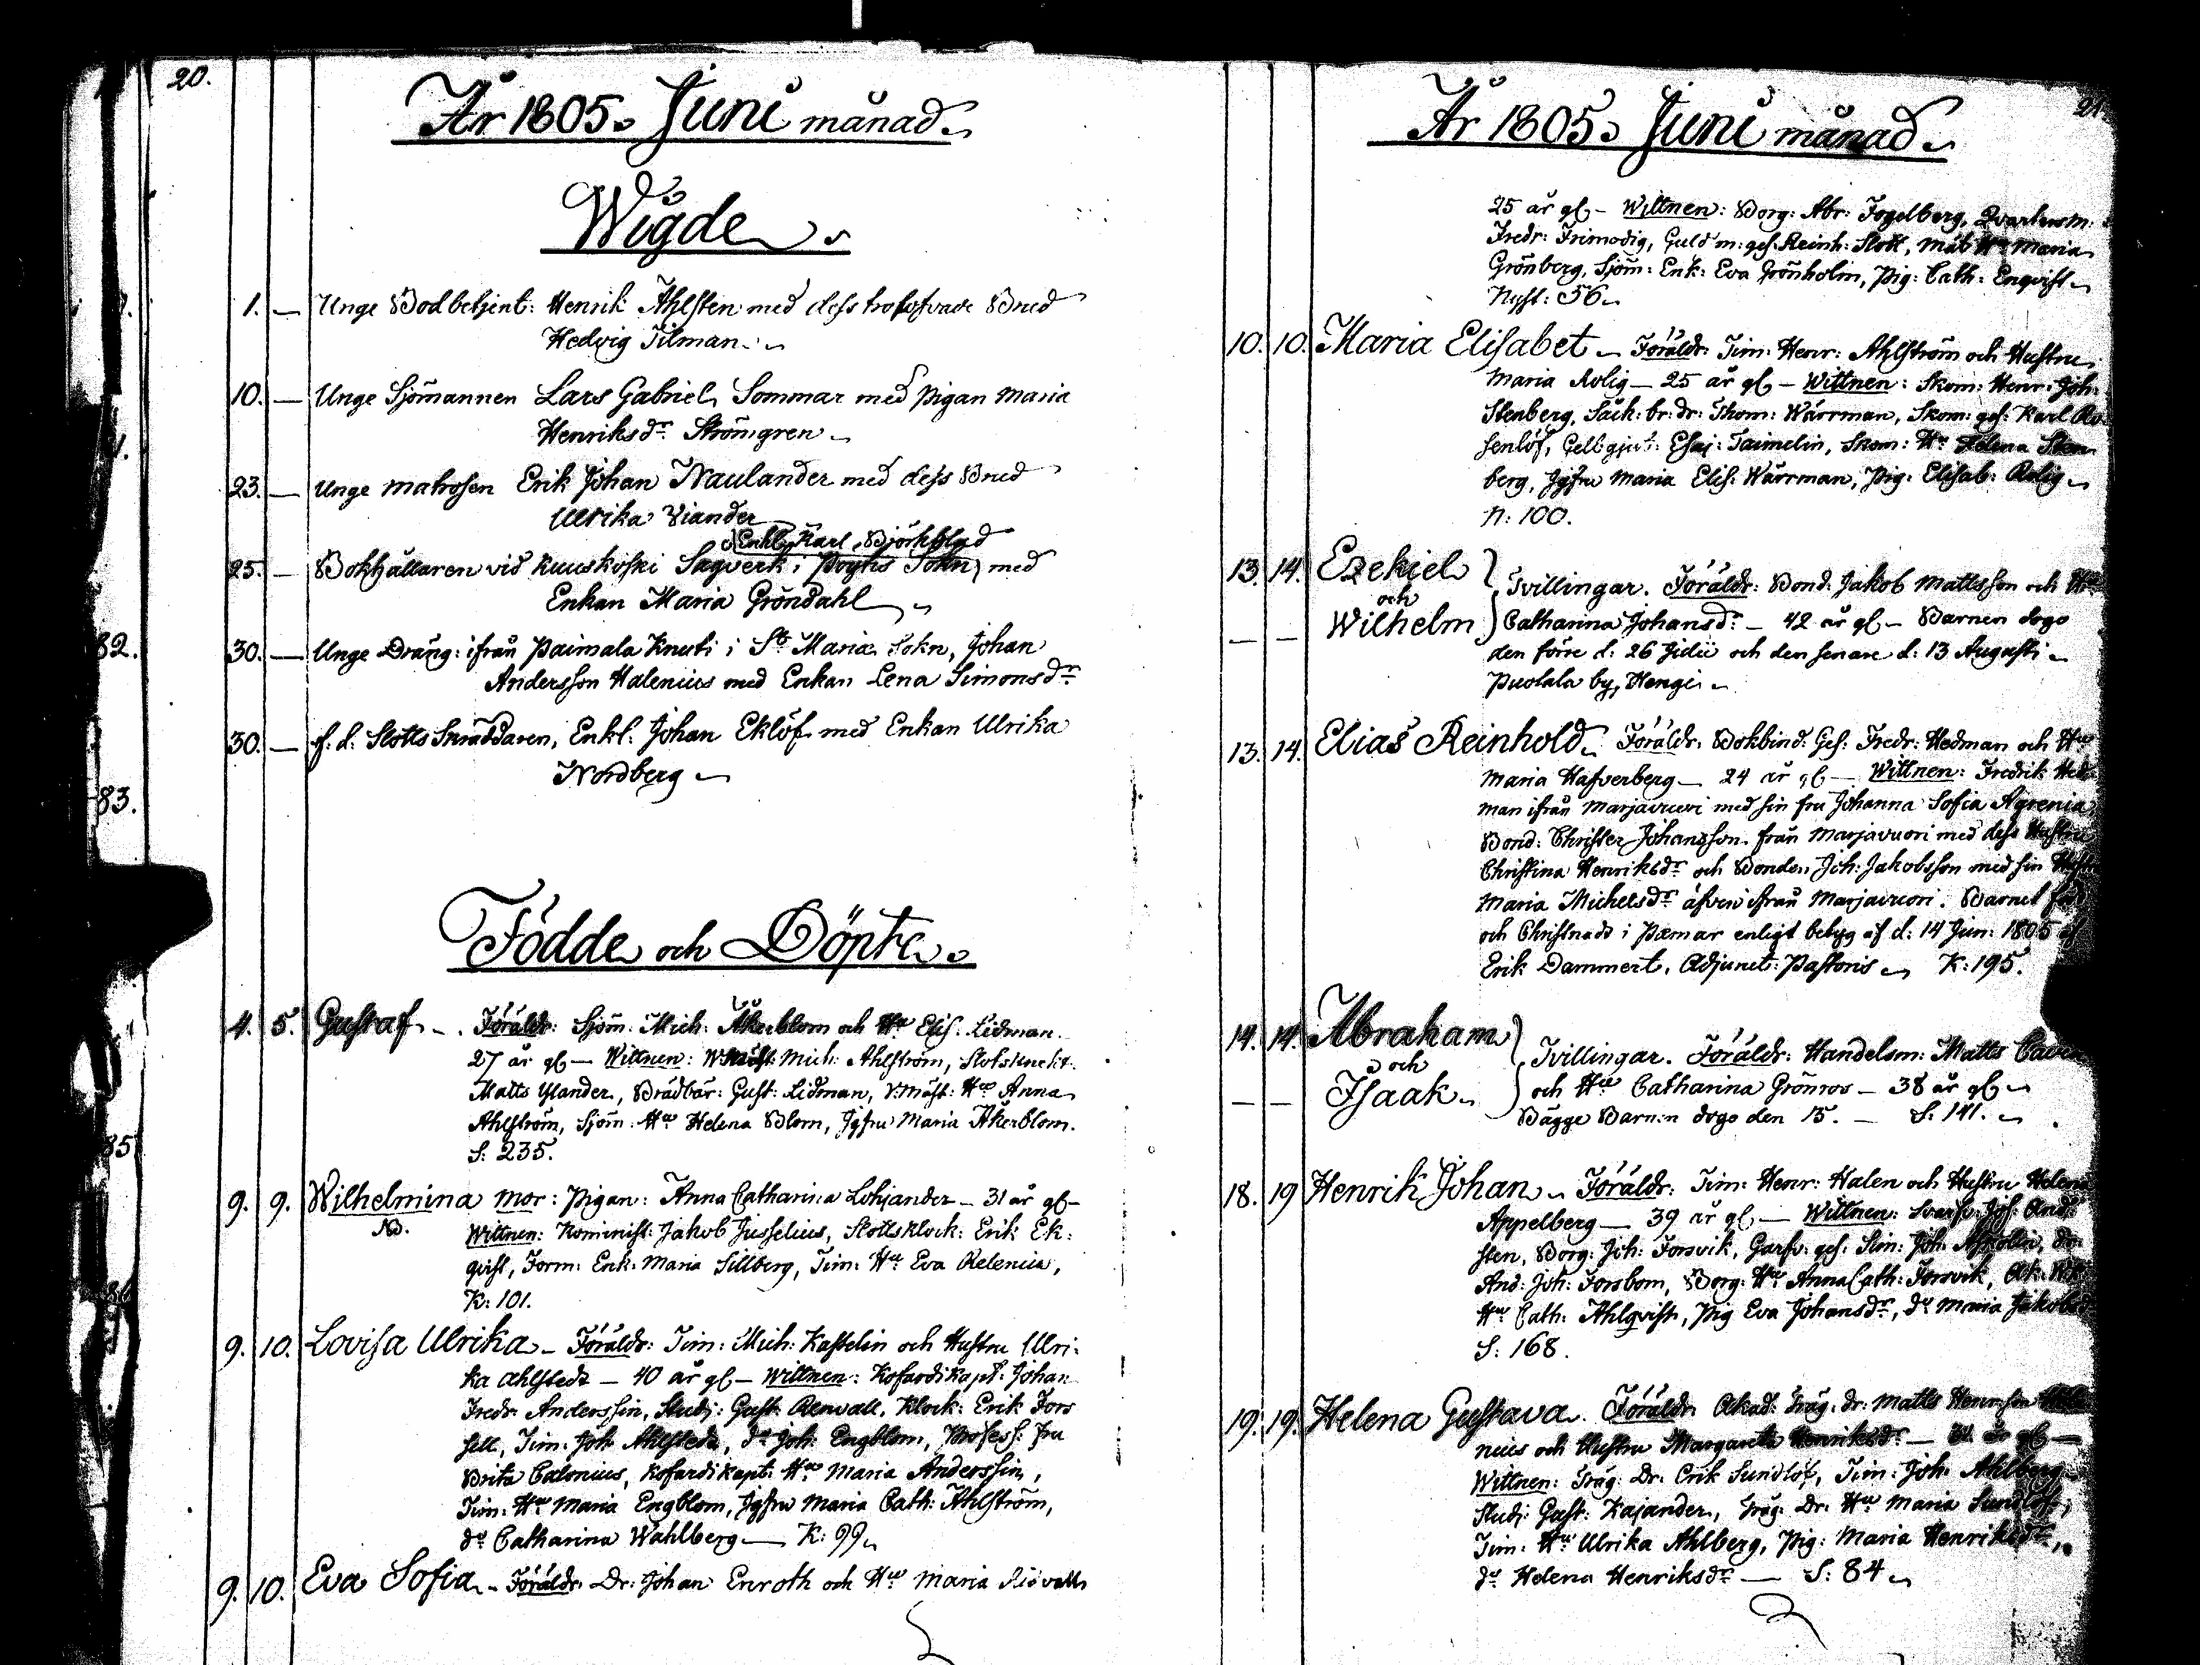 20.
År 1805. Juni månad.
Wigde.
1. — Unge Bodbetjent: Henrik Ahlsten med dess trolofvade Brud
Hedvig Tilman.
10. — Unge Sjömannen Lars Gabriel Sommar med pigan Maria
Henriksdr Strömgren
23. — Unge matrosen Erik Johan Naulander med dess Brud
Ulrika Viander
Enkl. Karl Björkblad
25. — Bokhållaren vid Kuuskoski Sagverk i Pöytis Sokn, med
Enkan Maria Gröndahl
30. — Unge Dräng: ifrån Paimala Knuti i St Maria Sokn, Johan
Andersson Halenius med Enkan Lena Simonsdr
30. — f. d. Slotts Skräddaren, Enkl. Johan Eklöf med Enkan Ulrika
Nordberg
Födde och Döpte.
4. 5. Gustaf — Föräldr: Sjöm: Mich: Åkerblom och Hu Elis. Lidman.
27 år gl — Wittnen: Mich: Ahlström, Slottsknekt:
Matts Ylander, Brädbär: Gust: Lidman, V:mäst: Hu Anna
Ahlström, Sjöm: Hu Helena Blom, Jgfru Maria Åkerblom.
S: 235.
9. 9. Wilhelmina mor: Pigan: Anna Catharina Lohjander — 31 år gl —
Wittnen: Kominist: Jakob Jusselius, Slottsklock: Erik Ek:
qvist, Form: Enk: Maria Sillberg, Tim: Hu Eva Relenius,
K: 101.
9. 10. Lovisa Ulrika — Föräldr: Tim: Mich: Kastelin och Hustru Ulri:
ka Ahlstedt — 40 år gl — Wittnen: Kofardikapt: Johan
Fredr Anderssin, Studj: Gust: Renvall, Klock: Erik Fors
sell, Tim: Joh: Ahlstedt, do Joh: Engblom, Profess: fru
Brita Calonius, Kofardikapt: Hu Maria Anderssin,
Tim: Hu Maria Engblom, Jgfru Maria Cath: Ahlström,
do Catharina Wahlberg — K: 99
9. 10. Eva Sofia — Föräldr: Dr: Johan Enroth och Hu Maria
21
År 1805. Juni månad.
25 år gl — Wittnen: Borg: Abr: Fogelberg, Qvartersm:
Fredr: Frimodig, Guldm: ges: Reinh: Slött, Mät Hu Maria
Grönberg, Sjöm: Enk: Eva Grönholm, Pig: Cath: Enqvist
Nyst: 56
10. 10. Maria Elisabet — Föräldr: Tim: Henr: Ahlström och Hustru
Maria Rolig — 25 år gl — Wittnen: Skom: Henr: Joh:
Stenberg, Säck: br: dr: Thom: Wärrman, Skom: ges: Karl Ro:
senlöf, Gellgjut: Esaj: Taimelin, Skom: Hu Helena Sten
berg, Jgfru Maria Elis: Wärrman, Pig: Elisab: Rolig
N: 100.
13. 14. Ezekiel
och
— — Wilhelm
Tvillingar. Föräldr: Bond: Jakob Mattsson och Hu
Catharina Johansdr — 42 år gl — Barnen dogo
den förre d: 26 Julii och den senare d: 13 Augusti
Puolala by, Hengi
13. 14. Elias Reinhold. Föräldr: Bokbind: Ges: Fredr: Hedman och Hu
Maria Hafverberg — 24 år gl — Wittnen: Fredrik Hed
man ifrån Marjavuori med sin fru Johanna Sofia Agrenia
Bond: Christer Johansson från Marjavuori med dess Hustru
Christina Henriksdr och Bonden Joh: Jakobsson med sin
Maria Michelsdr äfven ifrån Marjavuori. Barnet född
och Christnadt i Pæmar enligt betyg af d: 14 Jun: 1805 af
Erik Dammert, Adjunct: Pastoris K: 195.
14. 14. Abraham
och
— — Isaak
Tvillingar. Föräldr: Handelsm: Matts
och Hu Catharina Grönros — 38 år gl
Bägge Barnen dogo den 15. — S: 141.
18. 19 Henrik Johan — Föräldr: Tim: Henr: Halen och Hustru Helena
Appelberg — 39 år gl — Wittnen: Svarfv: Joh: And:
sten, Borg: Joh: Forsvik, Garfv: ges: Sim: Joh:
And: Joh: Forsbom, Borg: Hu Anna Cath: Forsvik,
Hu Cath: Ahlqvist, Pig Eva Johansdr, do Maria Jakobsd
S: 168.
19. 19. Helena Gustava. Föräldr: Akad: Träg: dr: Matts Henrsson
nius och Hustru Margareta Henriksdr — 31 år gl —
Wittnen: Träg: Dr: Erik Sundlöf, Tim: Joh: Ahlberg
Studj: Gust: Kajander, Träg: Dr: Hu Maria Sundlöf,
Tim: Hu Ulrika Ahlberg, Pig: Maria Henriksdr,
do Helena Henriksdr — S: 84